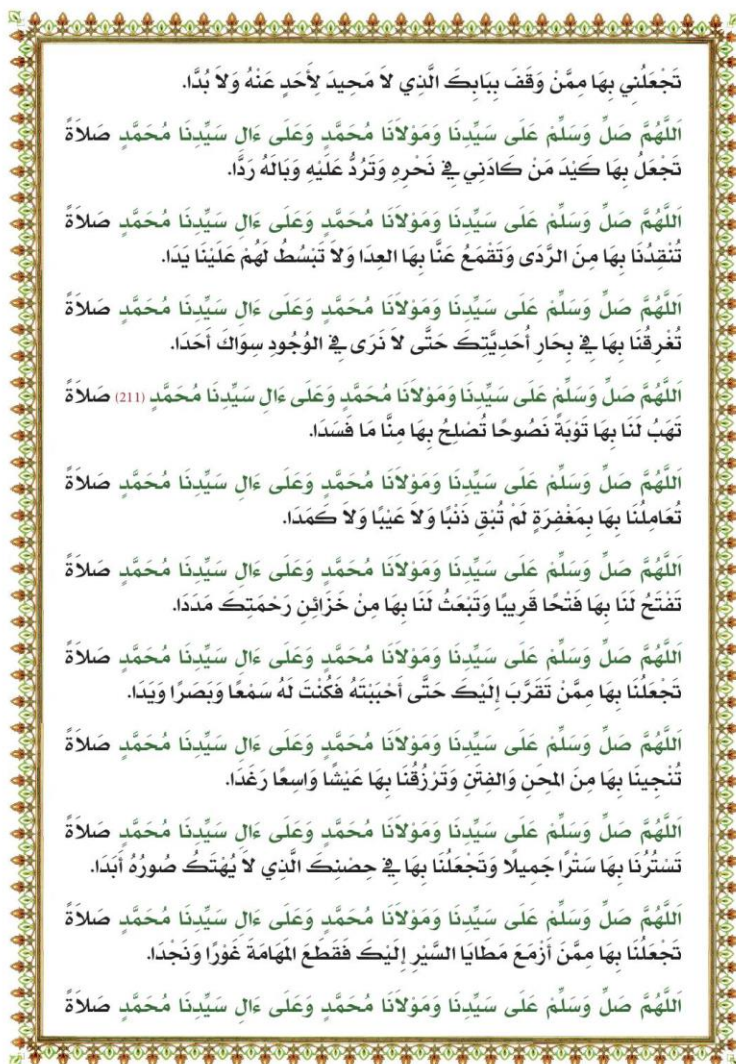 تَجْعَلُنِي بِهَا مِمَّنْ وَقَفَ بِبَابِكَ الَّذِي لاَ مَحِيدَ لِأَحَدٍ عَنْهُ وَلاَ بُدَّا.
اَللَّهُمَّ صَلِّ وَسَلِّمْ عَلَى سَيِّدِنَا وَمَوْلاَنَا مُحَمَّدٍ وَعَلَى ءَالِ سَيِّدِنَا مُحَمَّدٍ صَلاَةً
تَجْعَلُ بِهَا كَيْدَ مَنْ كَادَنِي فِي نَحْرِهِ وَتَرُدُّ عَلَيْهِ وَبَالَهُ رَدَّا.
اَللَّهُمَّ صَلِّ وَسَلِّمْ عَلَى سَيِّدِنَا وَمَوْلاَنَا مُحَمَّدٍ وَعَلَى ءَالِ سَيِّدِنَا مُحَمَّدٍ صَلاَةً
تُنْقِدُنَا بِهَا مِنَ الرَّدَى وَتَقْمَعُ عَنَّا بِهَا العِدَا وَلاَ تَبْسُطُ لَهُمْ عَلَيْنَا يَدَا.
اَللَّهُمَّ صَلِّ وَسَلِّمْ عَلَى سَيِّدِنَا وَمَوْلاَنَا مُحَمَّدٍ وَعَلَى ءَالِ سَيِّدِنَا مُحَمَّدٍ صَلاَةً
تُغْرِقُنَا بِهَا فِي بِحَارِ أَحَدِيَّتِكَ حَتَّى لاَ نَرَى فِي الوُجُودِ سِوَاكَ أَحَدَا.
اَللَّهُمَّ صَلِّ وَسَلِّمْ عَلَى سَيِّدِنَا وَمَوْلاَنَا مُحَمَّدٍ وَعَلَى ءَالِ سَيِّدِنَا مُحَمَّدٍ (211) صَلاَةً
تَهَبُ لَنَا بِهَا تَوْبَةً نَصُوحًا تُصْلِحُ بِهَا مِنَّا مَا فَسَدَا.
اَللَّهُمَّ صَلِّ وَسَلِّمْ عَلَى سَيِّدِنَا وَمَوْلاَنَا مُحَمَّدٍ وَعَلَى ءَالِ سَيِّدِنَا مُحَمَّدٍ صَلاَةً
تُعَامِلُنَا بِهَا بِمَغْفِرَةٍ لَمْ تُبْقِ ذَنْبًا وَلاَ عَيْبًا وَلاَ كَمَدَا.
اَللَّهُمَّ صَلِّ وَسَلِّمْ عَلَى سَيِّدِنَا وَمَوْلاَنَا مُحَمَّدٍ وَعَلَى ءَالِ سَيِّدِنَا مُحَمَّدٍ صَلاَةً
تَفْتَحُ لَنَا بِهَا فَتْحًا قَرِيبًا وَتَبْعَثُ لَنَا بِهَا مِنْ خَزَائِنِ رَحْمَتِكَ مَدَدَا.
اَللَّهُمَّ صَلِّ وَسَلِّمْ عَلَى سَيِّدِنَا وَمَوْلاَنَا مُحَمَّدٍ وَعَلَى ءَالِ سَيِّدِنَا مُحَمَّدٍ صَلاَةً
تَجْعَلُنَا بِهَا مِمَّنْ تَقَرَّبَ إِلَيْكَ حَتَّى أَحْبَبْتَهُ فَكُنْتَ لَهُ سَمْعًا وَبَصَرًا وَيَدَا.
اَللَّهُمَّ صَلِّ وَسَلِّمْ عَلَى سَيِّدِنَا وَمَوْلاَنَا مُحَمَّدٍ وَعَلَى ءَالِ سَيِّدِنَا مُحَمَّدٍ صَلاَةً
تُنْجِينَا بِهَا مِنَ المِحَنِ وَالفِتَنِ وَتَرْزُقُنَا بِهَا عَيْشًا وَاسِعًا رَغَدَا.
اَللَّهُمَّ صَلِّ وَسَلِّمْ عَلَى سَيِّدِنَا وَمَوْلاَنَا مُحَمَّدٍ وَعَلَى ءَالِ سَيِّدِنَا مُحَمَّدٍ صَلاَةً
تَسْتُرُنَا بِهَا سَتْرًا جَمِيلًا وَتَجْعَلُنَا بِهَا فِي حِصْنِكَ الَّذِي لاَ يُهْتَكُ صُورُهُ أَبَدَا.
اَللَّهُمَّ صَلِّ وَسَلِّمْ عَلَى سَيِّدِنَا وَمَوْلاَنَا مُحَمَّدٍ وَعَلَى ءَالِ سَيِّدِنَا مُحَمَّدٍ صَلاَةً
تَجْعَلُنَا بِهَا مِمَّنَ أَزْمَعَ مَطَايَا السَّيْرِ إِلَيْكَ فَقَطَعَ المَهَامَةَ غَوْرًا وَنَجْدَا.
اَللَّهُمَّ صَلِّ وَسَلِّمْ عَلَى سَيِّدِنَا وَمَوْلاَنَا مُحَمَّدٍ وَعَلَى ءَالِ سَيِّدِنَا مُحَمَّدٍ صَلاَةً